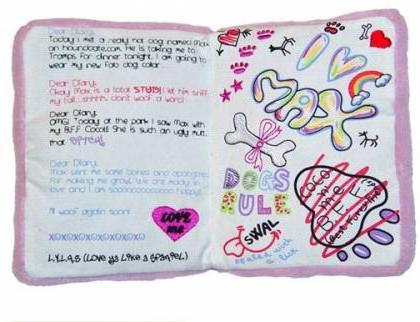 Dear Diary,
Today i met a really hot dog named Max
on hounddate.com. He is taking me to
Tramps for dinner tonight. I am going to
wear my new Fab dog collar
Dear Diary,
Okay Max is a total STUD!! I let him sniff
my tail...shhhh, don't woof a word
Dear Diary,
OMG! Today at the park I saw Max with
my B.F.F Coco!! She is such an ugly mutt,
that
Dear Diary,
Max sent me some bones and apologized
for making me growl. We are madly in
love and I am sooooooooooooo happy!
I'll woof again soon!
XOXOXOXOXOXOXO
LOVE
me
L.Y.L.A.S (Love ya Like a Spaniel)
I
MAX
DOGS
RULE
SWAL
sealed with
a lick
COCO
and me
B.F.F
Best Furiends